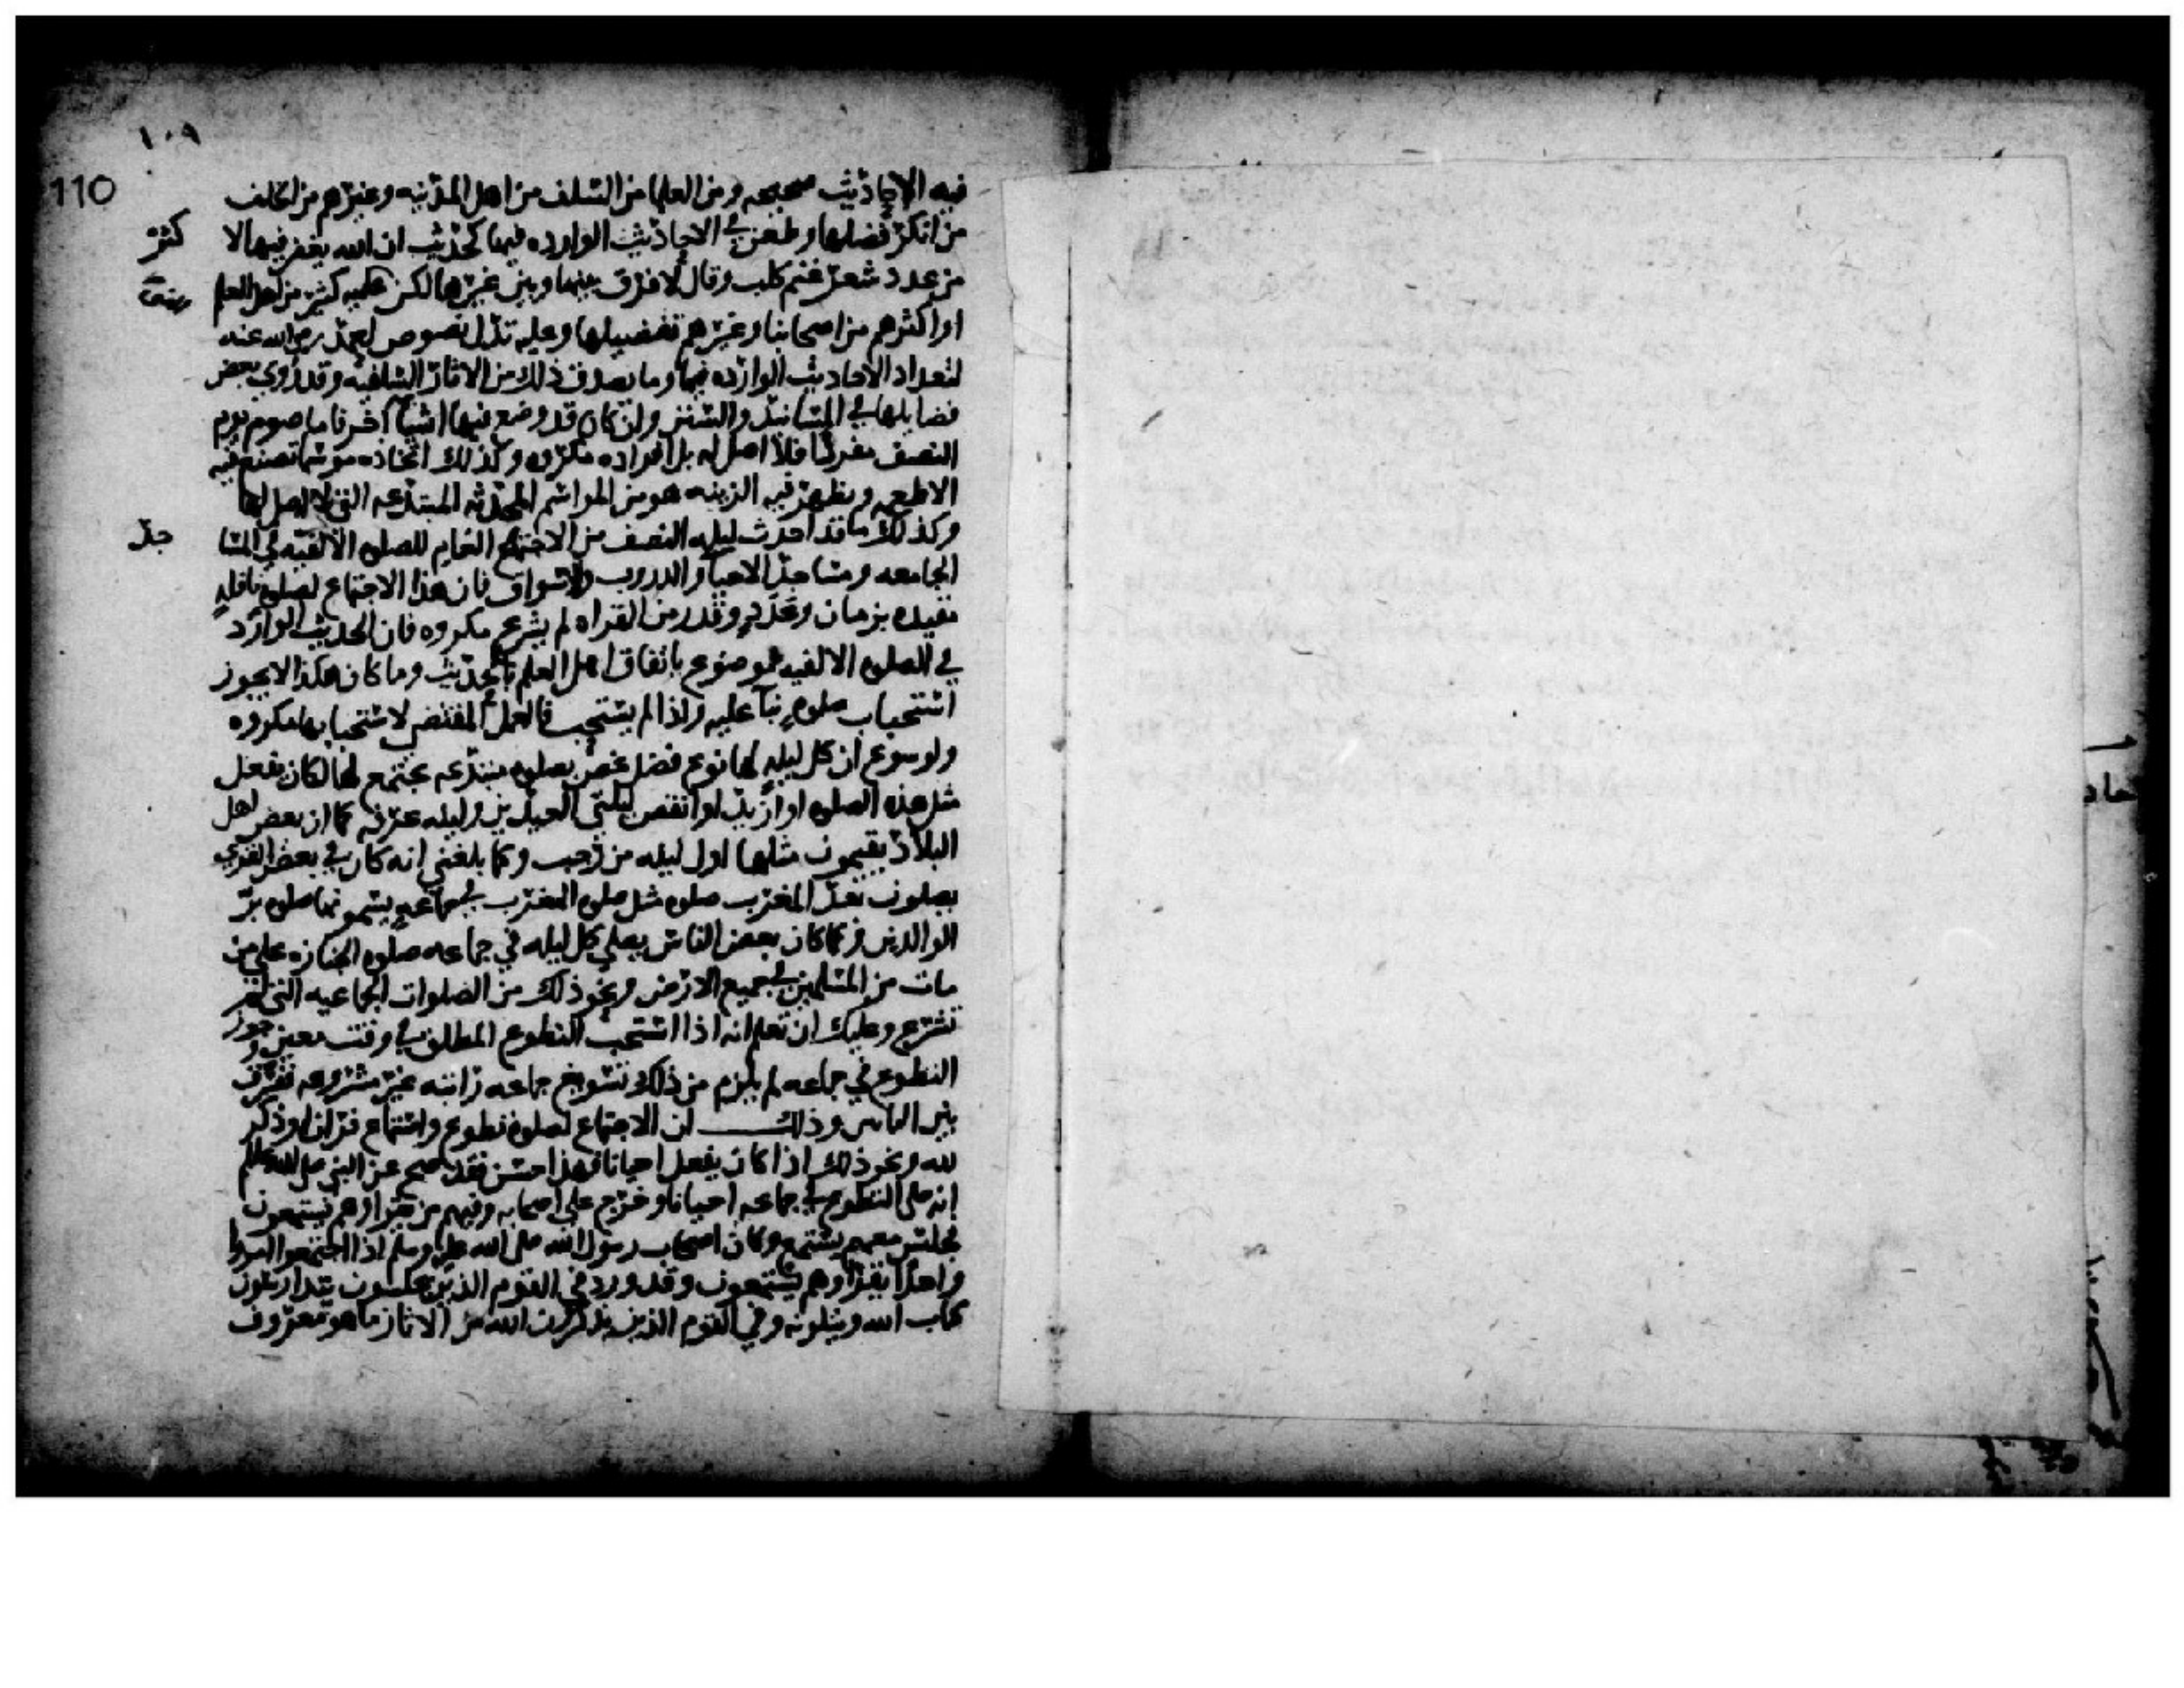 ١٠٩
110
فيه الاحاديث صحيحه ومن العلما من السلف من اهل المدينه وغيرهم من الخلف
من انكر فضلها وطعن في الاحاديث الوارده فيها كحديث ان الله يغفر فيها لا كثر
من عدد شعر غنم كلب وقال لا فرق بينها وبين غيرها لكن عليه كثير من اهل العلم
او اكثرهم من اصحابنا وغيرهم تفضيلها وعليه تدل نصوص احمد رضي الله عنه
لتعداد الاحاديث الوارده فيها وما يصدق ذلك من الاثار السلفيه وقد روي بعض
فضايلها في المسانيد والسنن وان كان قد وضع فيها اشيا اخر فاما صوم يوم
النصف مفردا فلا اصل له بل افراده مكروه وكذلك اتخاذه موسما تصنع فيه
الاطعمه ويظهر فيه الزينه هو من المواسم المحدثه المبتدعه التي لا اصل لها
وكذلك ما قد احدث ليله النصف من الاجتماع العام للصلوه الالفيه في المسا جد
الجامعه ومساجد الاحيا والدروب والاسواق فان هذا الاجتماع لصلوة نافلة
مقيده بزمان وعدد وقدر من القراه لم يشرع مكروه فان الحديث الوارد
في الصلوه الالفيه موضوع باتفاق اهل العلم بالحديث وما كان هكذا لا يجوز
استحباب صلوه بنآ عليه واذا لم يستحب فالعمل المقتضي لاستحبابها مكروه
ولو سوغ ان كل ليلة لها نوع فضل تخص بصلوه مبتدعه يجتمع لها لكان يفعل
مثل هذه الصلوه او ازيد او انقص ليلتي العيدين وليله عرفه كما ان بعض اهل
البلاد يقيمون مثلها اول ليله من رجب وكما بلغني انه كان في بعض القري
يصلون بعد المغرب صلوه مثل صلوه المغرب في جماعة يسمونها صلوه بر
الوالدين وكما كان بعض الناس يصلي كل ليله في جماعه صلوه الجنازه علي من
مات من المسلمين في جميع الارض ونحو ذلك من الصلوات الجماعيه التي لم
تشرع وعليك ان تعلم انه اذا استحب التطوع المطلق في وقت معين وجوز
التطوع في جماعه لم يلزم من ذلك تسويغ جماعه راتبه غير مشروعه ففرق
بين البابين وذلك ان الاجتماع لصلوة تطوع واستماع قران او ذكر
لله ونحو ذلك اذا كان يفعل احيانا فهذا حسن فقد صح عن النبي صلى الله عليه وسلم
انه صلى التطوع في جماعه احيانا وخرج علي اصحابه وفيهم من يقرا وهم يستمعون
فجلس معهم يستمع وكان اصحاب رسول الله صلى الله عليه وسلم اذا اجتمعوا امروا
واحدا يقرا وهم يستمعون وقد ورد في القوم الذين يجلسون يتدارسون
كتاب الله ويتلونه وفي القوم الذين يذكرون الله من الاثار ما هو معروف